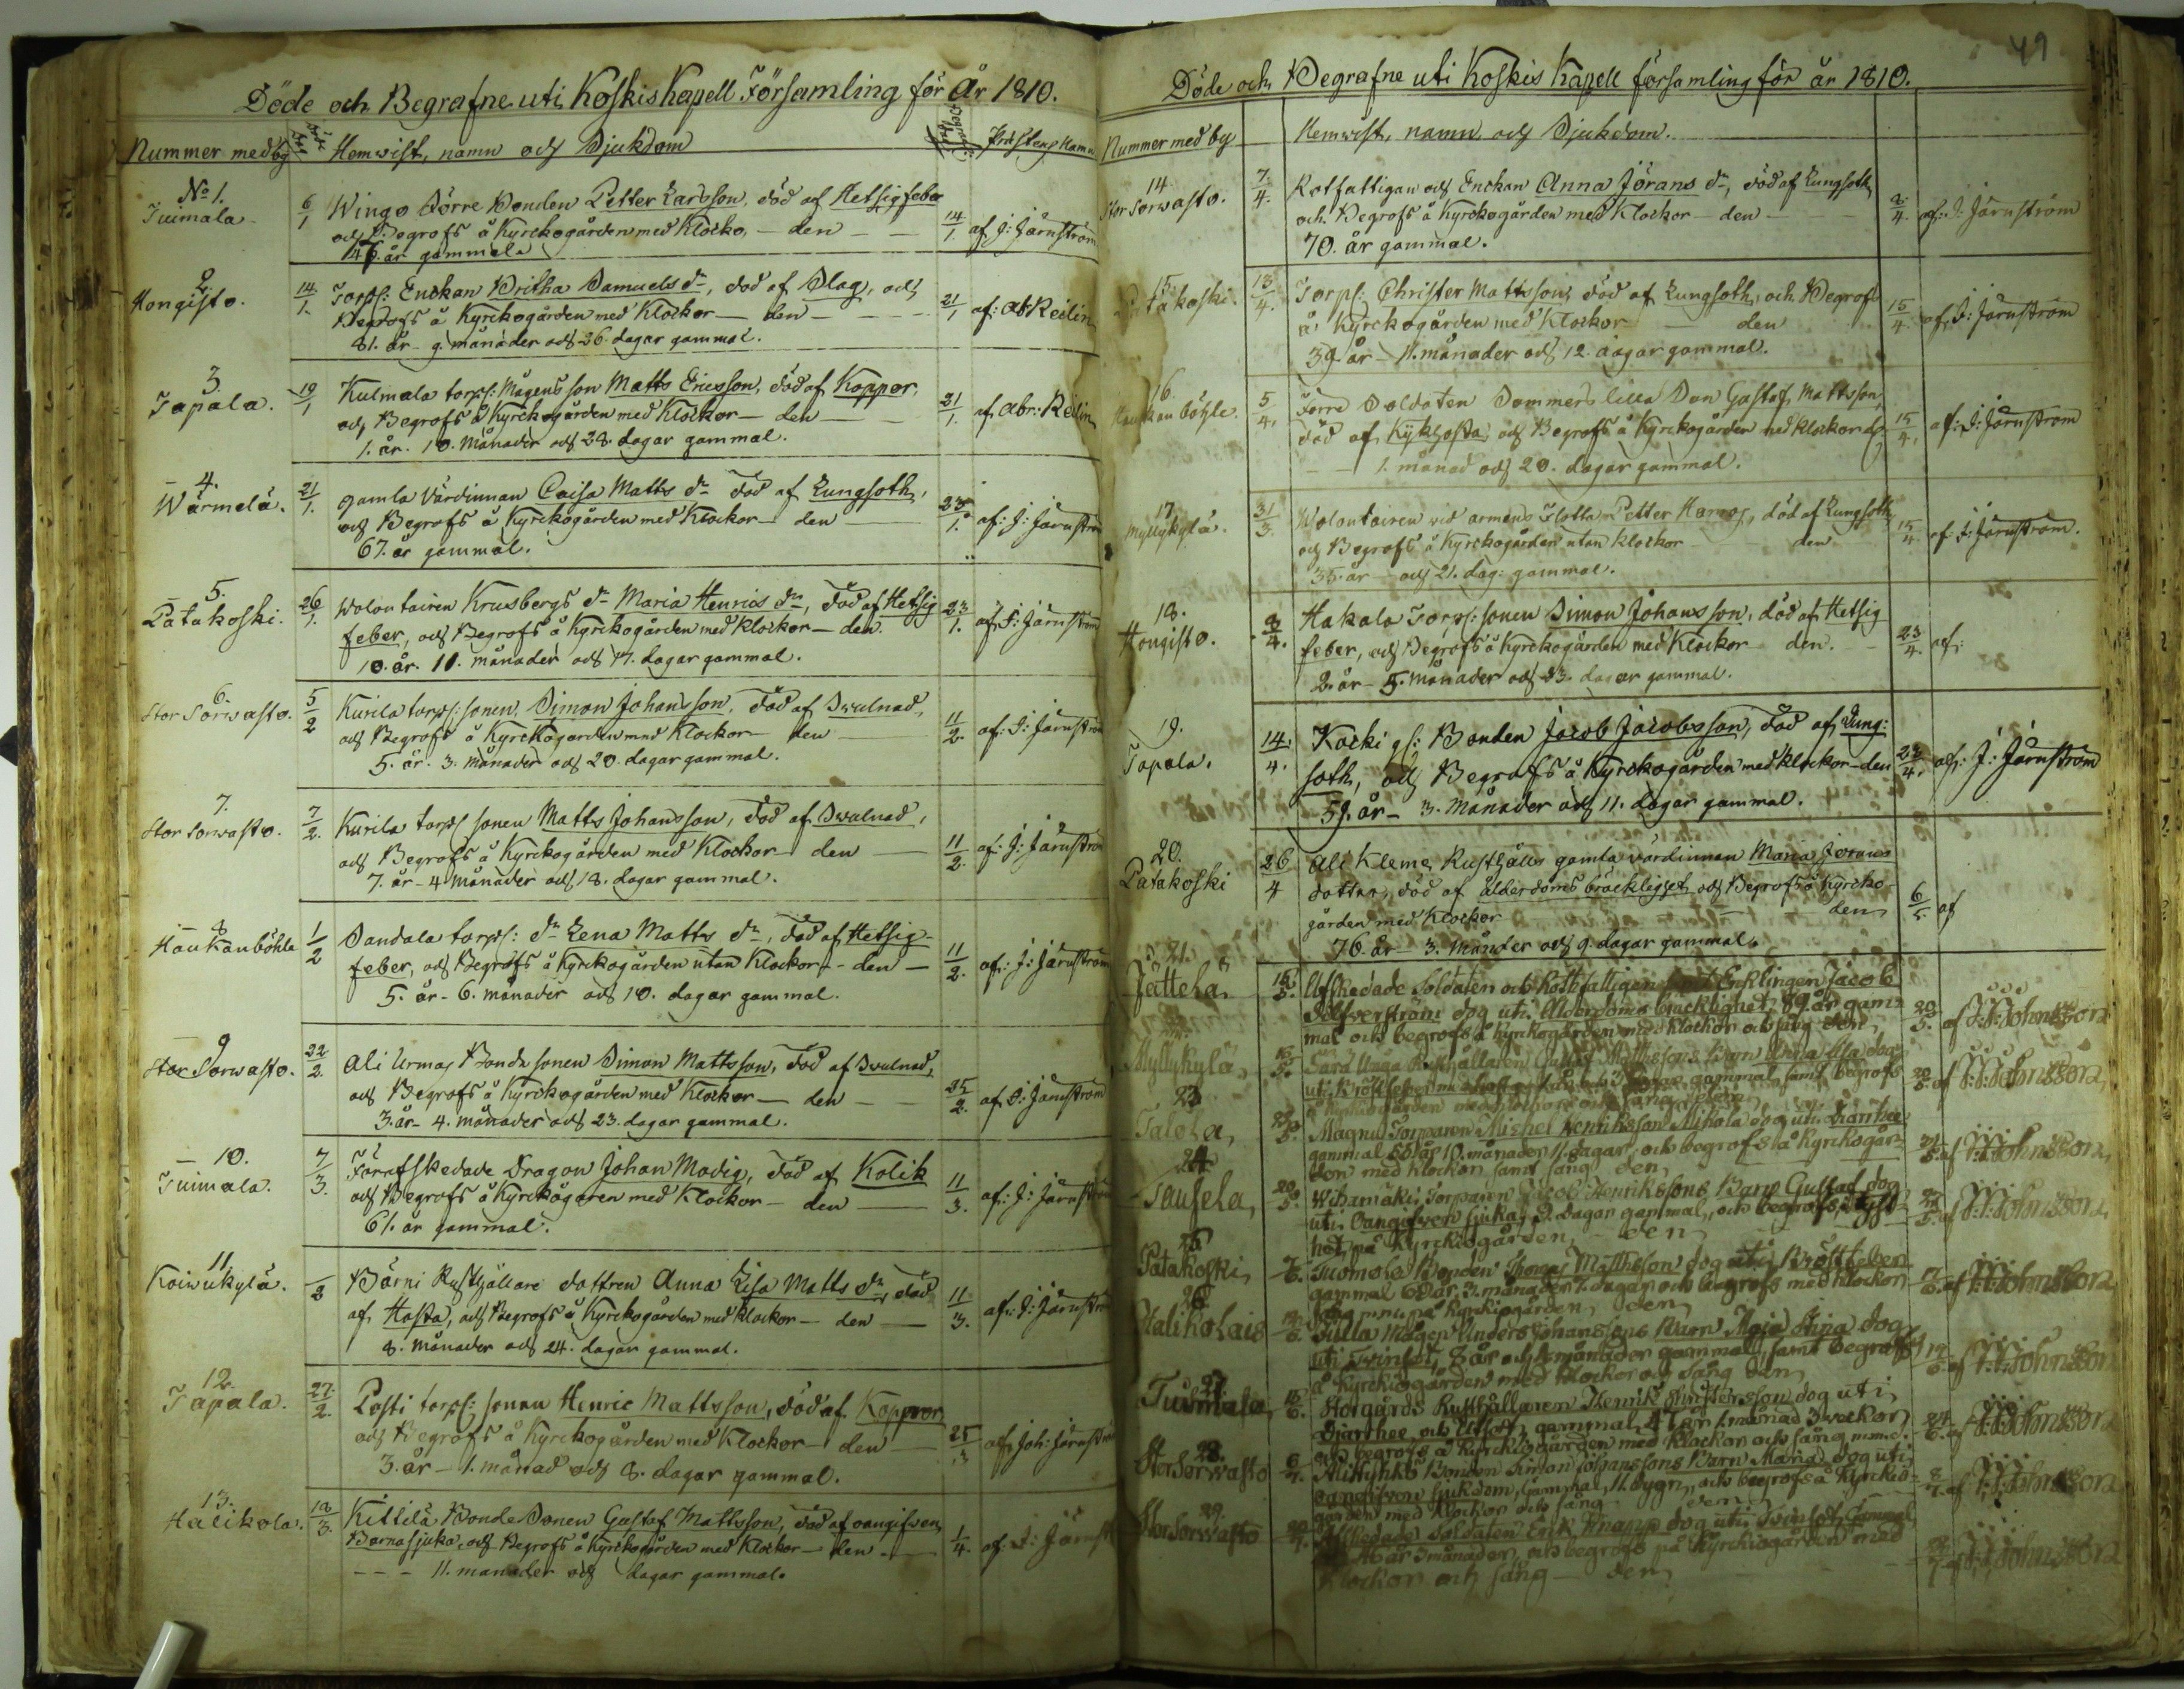 Döde och Begrafne uti Koskis Kapell Församling för År 1810.
Nummer med by
Hemwist, namn och Sjukdom
Prästens Namn
No 1.
Tuimala
6/1 Wingo Större Bonden Petter Carlsson, död af Hetsig feber
och Begrofs å Kyrckogården med Klocko, — den — 14/1. af J: Järnström
46. år gammal
2.
Hongisto.
14/1. Torps: Enckan Britha Samuels dr, död af Slag, och
Begrofs å Kyrckogården med Klockor — den — 21/1 af: Ab Reilin
81. år 9. månader och 26 dagar gammal.
3.
Tapala.
19/1 Kulmala torps: Mågens son Matts Ericsson, död af Koppor,
och Begrofs å Kyrckogården med Klockor — den — 21/1. af Abr: Reilin
1. år. 10. Månader och 28. dagar gammal.
4.
Wärmelä.
21/1. gamla Värdinnan Caisa Matts dr död af Lungsoth,
och Begrofs å Kyrckogården med Klockor — den — 23/1. af: J: Järnström
67. år gammal.
5.
Patakoski.
26/1. Wolontairen Krusbergs dr Maria Henrics dr, död af Hetsig
feber, och Begrofs å Kyrckogården med Klockor — den. 23/1. af: J: Järnström
10. år. 11. månader och 17. dagar gammal.
6.
Stor Sorwasto.
5/2 Kurila torps: sonen, Simon Johansson, död af Swulnad,
och Begrofs å Kyrckogården med Klockor — den — 11/2. af: J: Järnström
5. år. 3. Månader och 20. dagar gammal.
7.
Stor Sorwasto.
7/2. Kurila torps sonen Matts Johansson, död af Swulnad,
och Begrofs å Kyrckogården med Klockor den — 11/2. af: J: Järnström
7. år — 4 Månader och 18. dagar gammal.
8
Haukanböhle
1/2 Sandala torps: dr Lena Matts dr, död af Hetsig
feber, och Begrofs å Kyrckogården utan Klockor — den — 11/2. af: J: Järnström
5. år - 6. månader och 10. dagar gammal.
9
Stor Sorwasto.
22/2. Ali Urmas Bonde sonen Simon Mattsson, död af Swulnad,
och Begrofs å Kyrckogården med Klockor — den — 25/2. af J: Järnström
3. år - 4. månader och 23. dagar gammal.
10.
Tuimala.
7/3. Förafskedade Dragon Johan Modig, död af Kolik
och Begrofs å Kyrckogåren med Klockor — den — 11/3. af: J: Järnström
61. år gammal.
11.
Koiwukylä.
/2 Bärni Rusthållare dottren Anna Lisa Matts dr, död
af Hosta, och Begrofs å Kyrckogården med Klockor — den — 11/3. af: J: Järnström
8. Månader och 24. dagar gammal.
12.
Tapala.
27/2. Posti torps: sonen Henric Mattsson, död af Koppor
och Begrofs å Kyrckogården med Klockor — den — 25/3 af Joh: Järnström
3. år — 1. månad och 8. dagar gammal.
13.
Halikola.
18/3. Kittilä Bonde Sonen Gustaf Mattsson, död af oangifven
Barnasjuka, och Begrofs å Kyrckogården med Klockor — den — 1/4. af J: Järnst
— — — 11. månader och dagar gammal.
49
Döde och Begrafne uti Koskis Kapell församling för år 1810.
Nummer med by
Hemwist, namn och Sjukdom.
14
Stor Sorwasto.
7/4. Rotfattigan och Enckan Anna Jörans dr, död af Lungsoth,
och Begrofs å Kyrckogården med Klockor — den — /4. af: J: Järnström
70. år gammal.
15.
Patakoski.
13/4. Torps: Christer Mattsson död af Lungsoth, och Begrofs
å Kyrckogården med Klockor — den 15/4. af J: Järnström
39 år — 11. månader och 12. dagar gammal.
16.
Haukanböhle.
5/4. Förre Soldaten Sommers lilla Son Gustaf Mattsson,
död af Kykhosta, och Begrofs å Kyrckogården med klockor 15/4. af: J: Järnström
— 1. månad och 20. dagar gammal.
17.
Myllykylä.
31/3. Wolontairen wid armens Flotta Petter död af Lungsoth,
och Begrofs å Kyrckogården utan klockor den 15/4 af J: Järnström.
35. år och 21. dag: gammal.
18.
Hongisto.
/4. Hakala Torps: sonen Simon Johansson, död af Hetsig
feber, och Begrofs å Kyrckogården med Klockor den. — 23/4. af:
2. år — 5. Månader och 23. dagar gammal.
19.
Tapala.
14./4. Kocki gl: Bonden Jacob Jacobsson, död af Lung:
soth, och Begrofs å Kyrckogården med klockor — den 23/4. af: J: Järnström
59. år — 3. Månader och 11. dagar gammal.
20.
Patakoski
26/4 Ali Kleme Rusthålls gamla värdinnan Maria Jörans
dotter, död af ålderdoms bräcklighet och Begrofs å Kyrcko-
gården med Klockor — den 6/5. af
76. år — 3. Månder och 9. dagar gammal.
21.
Jättelä,
15/5. Afskedade Soldaten och Rotfattigen samt Encklingen Jacob
Silfverström dog uti Ålderdoms bräcklighet, 89 år gam-
mal och begrofs å kyrkogården med klockor och sång den, 20/5. af J: Johnsson
Myllykylä,
Rusthållaren Gustaf Matthssons Barn Lisa dog
uti Bröstfeber gammal samt begrofs
å kyrkogården med klockor och sång den, 20/5. af Johnsson,
23
Talola,
Magnu Torparen Michel Henriksson Mikola dog uti
gammal 56 år 10. månader 11. dagar, och begrofs å kyrckiogår-
den med klockor samt sång den, af Johnsson,
24
Tausela,
20/5. Torparen Jacob Henrikssons Barn Gustaf dog
uti oangifven sjuka, 9. dagar gammal, och begrofs i tyst-
het, på Kyrckiogården, — den, af Johnsson,
25
Patakoski,
Tuomola Bonden Thomas Matthsson dog uti Bröstfeber
gammal 60 år, 3. månader 7. dagar och begrofs med klockor
sång m.m. på Kyrkiogården, den, af Johnsson
26
Halikolais
Tulla Mågen Anders Johanssons Barn Maja Stina dog
uti Twinsot, 8 år och månader gammal, samt begrofs
å Kyrckiogården med klockor och sång den, af Johnsson
27
Tuimala,
Storgårds Rusthållaren Henrik Christersson dog uti
Diarrhee och Utsot, gammal 47 år 1. månad 3 veckor,
och begrofs å kyrckiogården med klockor och sång m.m. d. 24/6. af Johnsson
28.
StorSorwasto
Mittyrkkö Bonden Simon Johanssons Barn Maria dog uti
oangifven sjukdom, gammal, 11. dygn, och begrofs å kyrckio-
gården med klockor och sång den, 8/7. af Johnsson
29.
StorSorwasto
Afskedade Soldaten Erik Knapp dog uti Twinsot, Gammal
46 år 3 månader, och begrofs på Kyrckiogården med
klockor och sång — den, af Johnsson